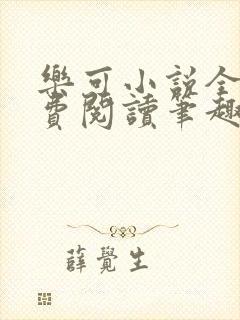 樂可小說全
費閱讀筆趣
薛覺生